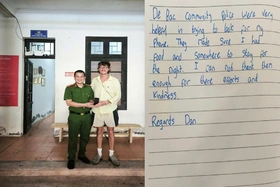 De Rac Community Police were very
helpful in trying to look for my
Phone. They made sure I had
Food and somewhere to stay for
the night. I can not thank them
enough for there efforts and
kindness.
Regards Dan